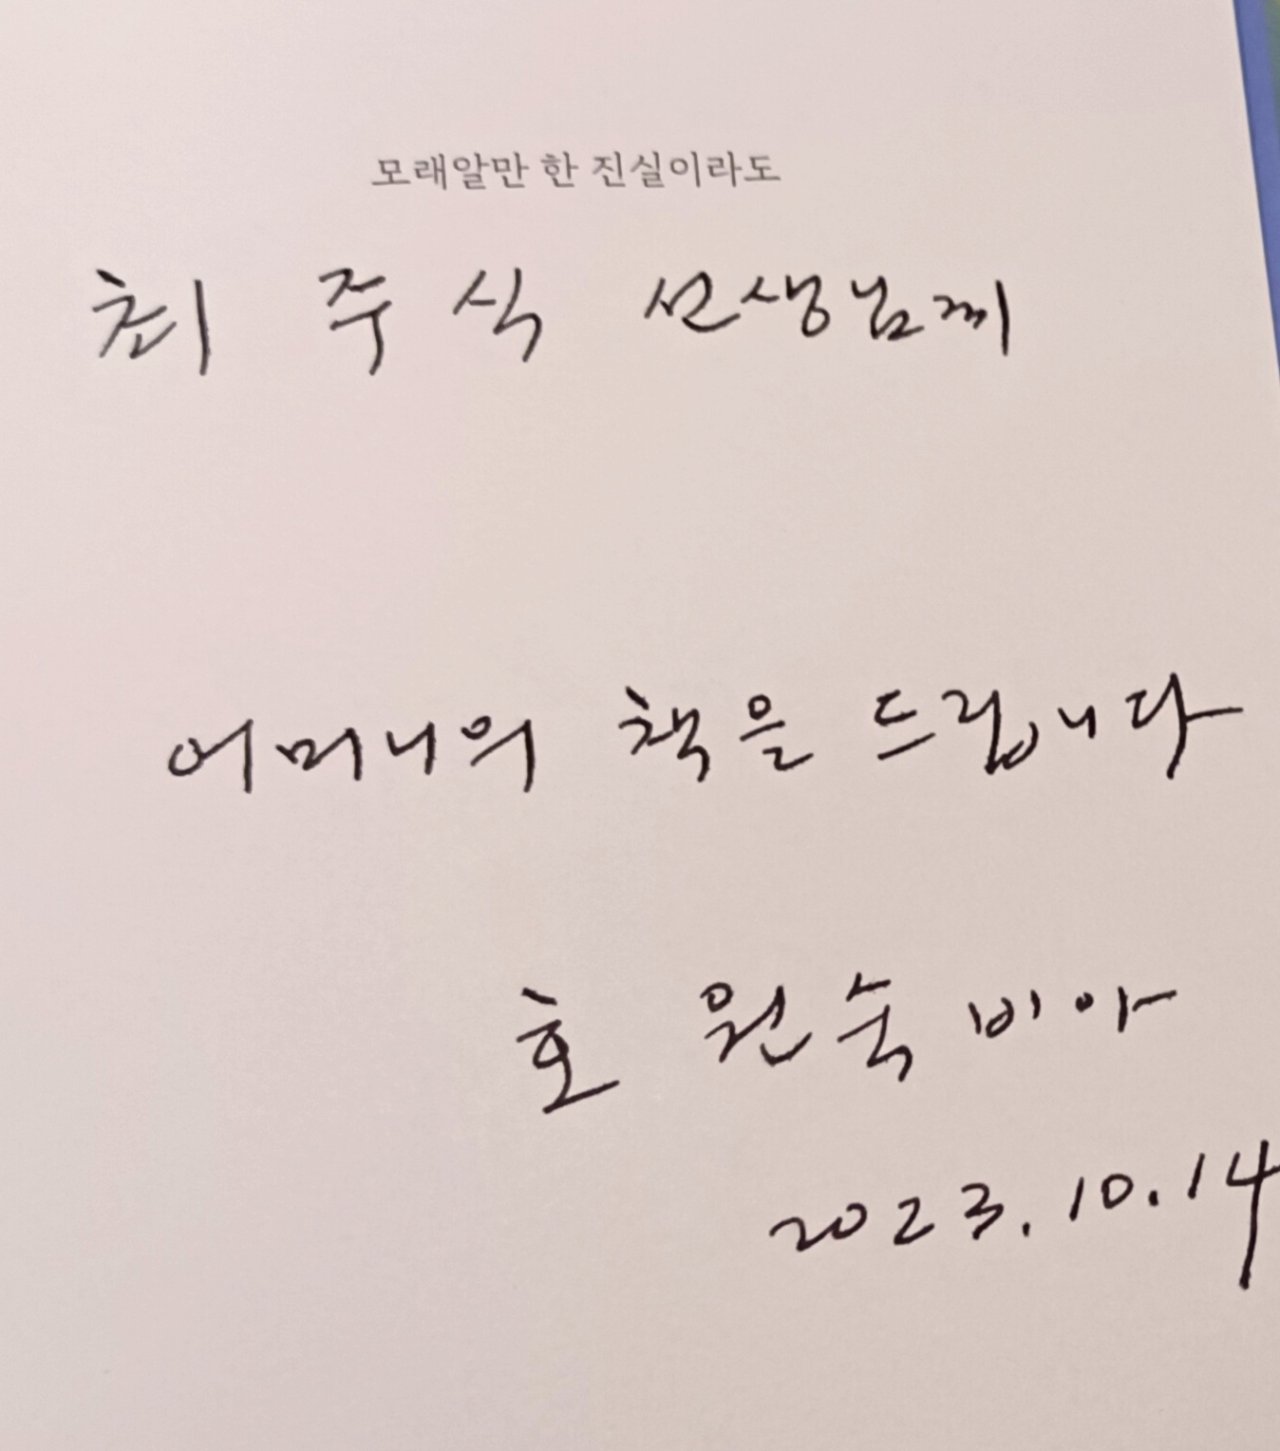 모래알만 한 진실이라도
최 주 식 선생님께
어머니의 책을 드립니다
호 원 숙 비아
2023.10.14